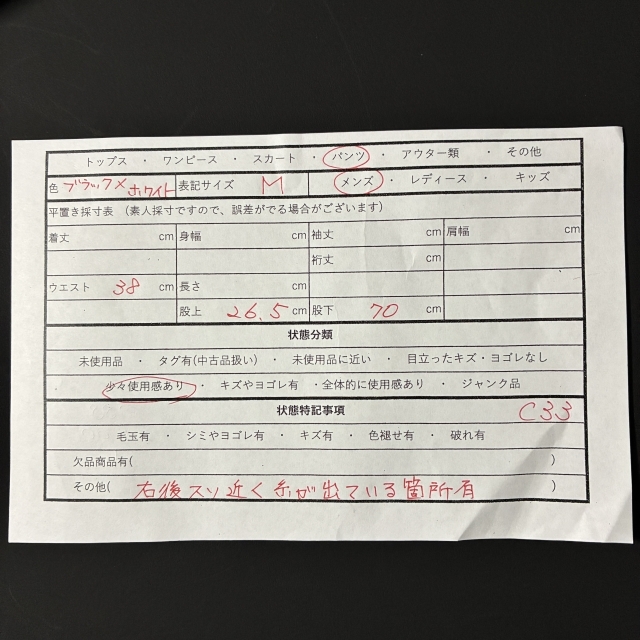 トップス ・ ワンピース ・ スカート ・ パンツ ・ アウター類 ・ その他
色 ブラック×ホワイト 表記サイズ M メンズ ・ レディース ・ キッズ
平置き採寸表 (素人採寸ですので、誤差がでる場合がございます)
着丈 cm 身幅 cm 袖丈 cm 肩幅 cm
裄丈 cm
ウエスト 38 cm 長さ cm
股上 26.5 cm 股下 70 cm
状態分類
未使用品 ・ タグ有(中古品扱い) ・ 未使用に近い ・ 目立ったキズ・ヨゴレなし
少々使用感あり ・ キズやヨゴレ有 ・全体的に使用感あり ・ ジャンク品
状態特記事項 C33
毛玉有 ・ シミやヨゴレ有 ・ キズ有 ・ 色褪せ有 ・ 破れ有
欠品商品有( )
その他( 右後スソ近く糸が出ている箇所有 )